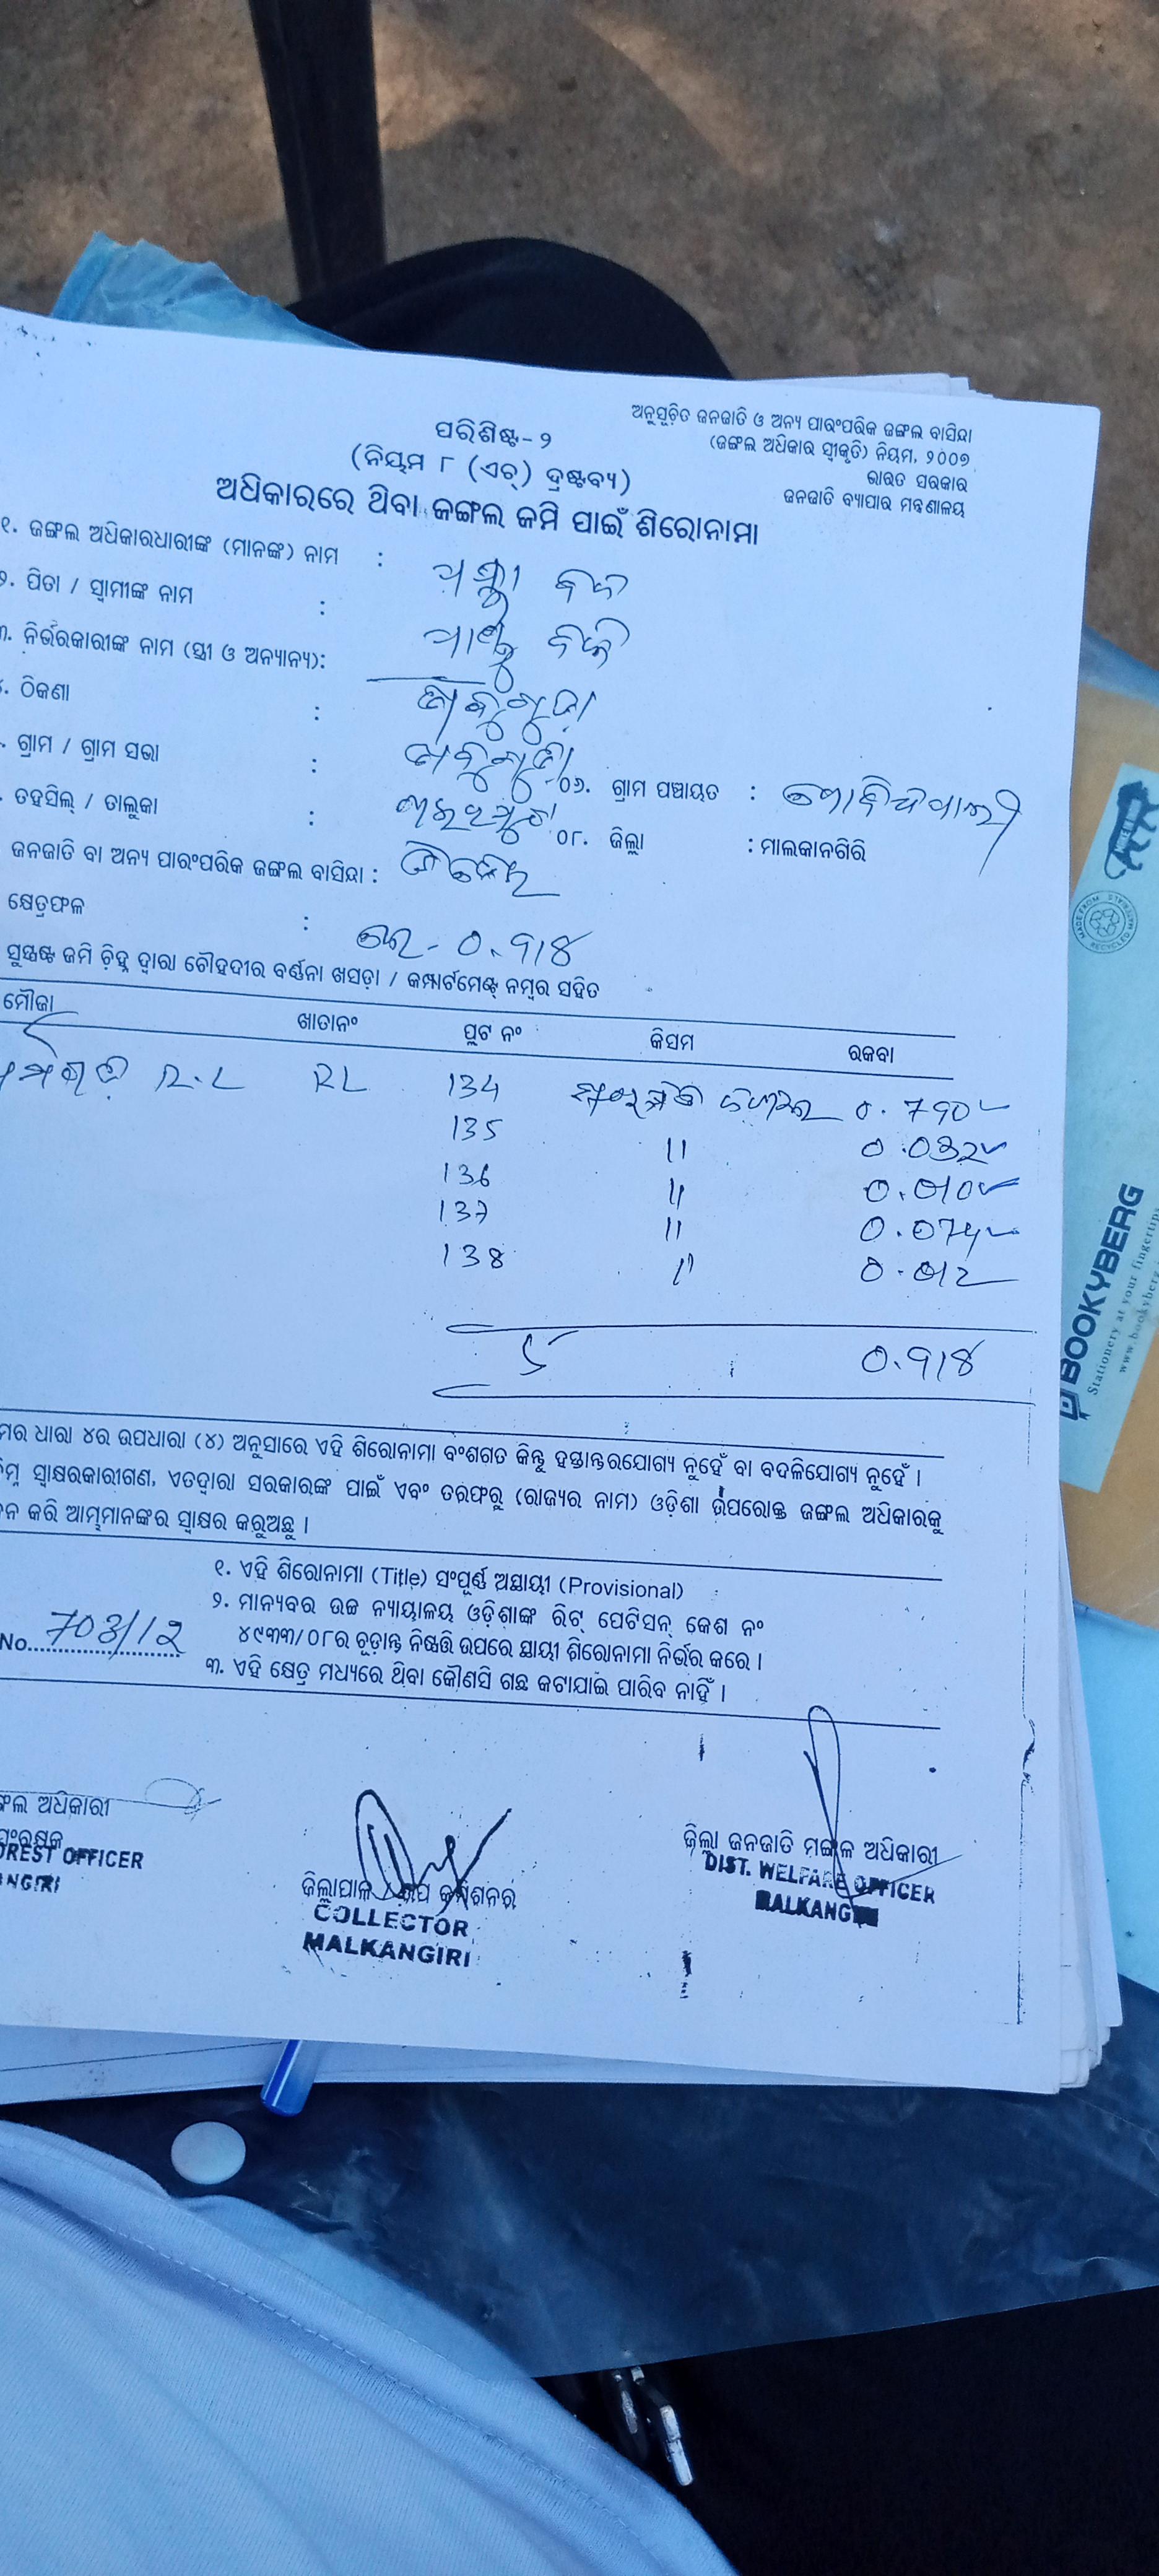 ଅନୁସୂଚିତ ଜନଜାତି ଓ ଅନ୍ୟ ପାରଂପରିକ ଜଙ୍ଗଲ ବାସିନ୍ଦା
(ଜଙ୍ଗଲ ଅଧିକାର ସ୍ୱୀକୃତି) ନିୟମ, ୨୦୦୭
ଭାରତ ସରକାର
ଜନଜାତି ବ୍ୟାପାର ମନ୍ତ୍ରଣାଳୟ
ପରିଶିଷ୍ଟ-୨
(ନିୟମ ୮ (ଏଚ୍) ଦ୍ରଷ୍ଟବ୍ୟ)
ଅଧିକାରରେ ଥିବା ଜଙ୍ଗଲ ଜମି ପାଇଁ ଶିରୋନାମା
୧. ଜଙ୍ଗଲ ଅଧିକାରଧାରୀଙ୍କ (ମାନଙ୍କ) ନାମ :
୨. ପିତା / ସ୍ୱାମୀଙ୍କ ନାମ :
୩. ନିର୍ଭରକାରୀଙ୍କ ନାମ (ସ୍ତ୍ରୀ ଓ ଅନ୍ୟାନ୍ୟ):
. ଠିକଣା :
. ଗ୍ରାମ / ଗ୍ରାମ ସଭା : ୦୬. ଗ୍ରାମ ପଞ୍ଚାୟତ :
. ତହସିଲ୍ / ତାଲୁକା : ୦୮. ଜିଲ୍ଲା : ମାଲକାନଗିରି
ଜନଜାତି ବା ଅନ୍ୟ ପାରଂପରିକ ଜଙ୍ଗଲ ବାସିନ୍ଦା :
କ୍ଷେତ୍ରଫଳ : 0.918
ସୁସ୍ପଷ୍ଟ ଜମି ଚିହ୍ନ ଦ୍ୱାରା ଚୌହଦୀର ବର୍ଣ୍ଣନା ଖସଡ଼ା / କମ୍ପାର୍ଟମେଣ୍ଟ୍ ନମ୍ବର ସହିତ
ମୌଜା ଖାତାନଂ ପ୍ଲଟ ନଂ କିସମ ରକବା
R.L RL 134 0.790
135 " 0.032
136 " 0.010
137 " 0.074
138 " 0.012
5 0.918
ମର ଧାରା ୪ର ଉପଧାରା (୪) ଅନୁସାରେ ଏହି ଶିରୋନାମା ବଂଶଗତ କିନ୍ତୁ ହସ୍ତାନ୍ତରଯୋଗ୍ୟ ନୁହେଁ ବା ବଦଳିଯୋଗ୍ୟ ନୁହେଁ ।
ନିମ୍ନ ସ୍ୱାକ୍ଷରକାରୀଗଣ, ଏତଦ୍ୱାରା ସରକାରଙ୍କ ପାଇଁ ଏବଂ ତରଫରୁ (ରାଜ୍ୟର ନାମ) ଓଡ଼ିଶା ଉପରୋକ୍ତ ଜଙ୍ଗଲ ଅଧିକାରକୁ
ନ କରି ଆମ୍ଭମାନଙ୍କର ସ୍ୱାକ୍ଷର କରୁଅଛୁ ।
୧. ଏହି ଶିରୋନାମା (Title) ସଂପୂର୍ଣ୍ଣ ଅସ୍ଥାୟୀ (Provisional)
୨. ମାନ୍ୟବର ଉଚ୍ଚ ନ୍ୟାୟାଳୟ ଓଡ଼ିଶାଙ୍କ ରିଟ୍ ପେଟିସନ୍ କେଶ ନଂ
୪୯୩୩/୦୮ର ଚୂଡ଼ାନ୍ତ ନିଷ୍ପତ୍ତି ଉପରେ ସ୍ଥାୟୀ ଶିରୋନାମା ନିର୍ଭର କରେ ।
No. 703/12
୩. ଏହି କ୍ଷେତ୍ର ମଧ୍ୟରେ ଥିବା କୌଣସି ଗଛ କଟାଯାଇ ପାରିବ ନାହିଁ ।
ଙ୍ଗଲ ଅଧିକାରୀ
ସଂରକ୍ଷକ
OREST OFFICER
NGIRI
ଜିଲ୍ଲାପାଳ / ଉପ କମିଶନର
COLLECTOR
MALKANGIRI
ଜିଲ୍ଲା ଜନଜାତି ମଙ୍ଗଳ ଅଧିକାରୀ
DIST. WELFARE OFFICER
MALKANG
BOOKYBERG
Stationery at your fingertips
MADE FROM RECYCLED MATERIALS